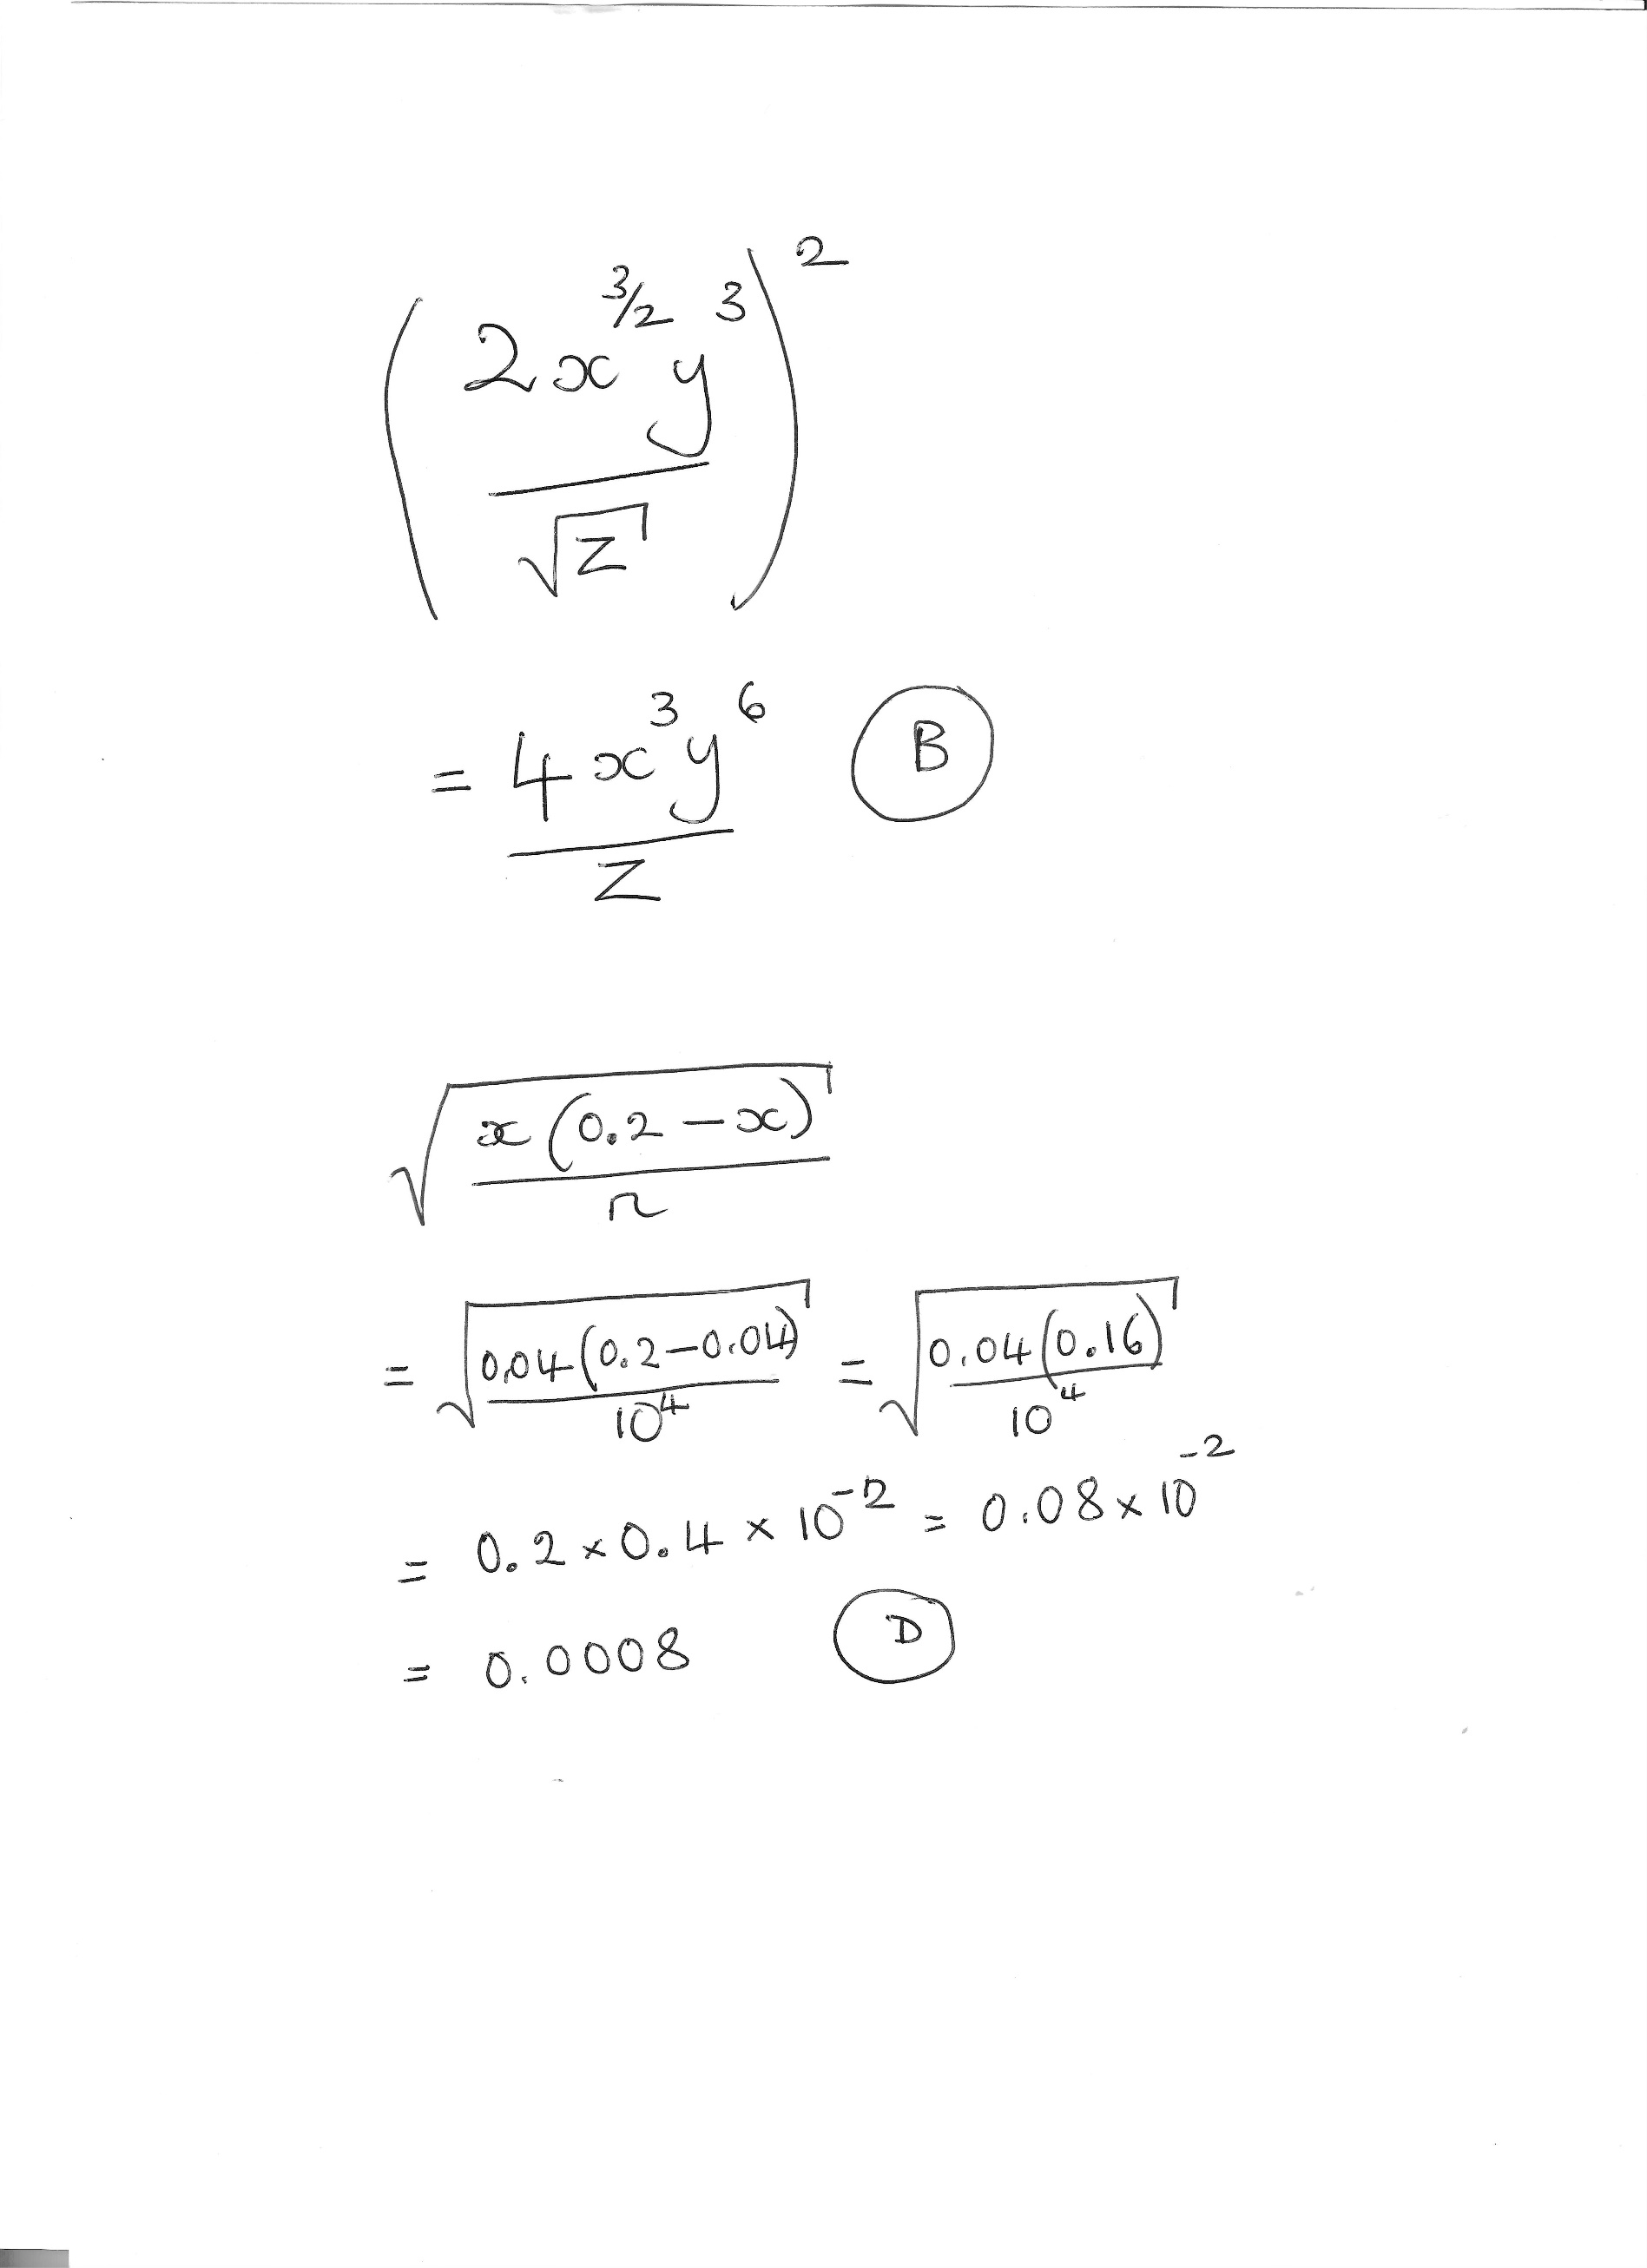 (2x^(3/2) y^3 / √z)^2
= 4x^3y^6 / z B
√(x(0.2 – x) / n)
= √(0.04(0.2–0.04) / 10^4) = √(0.04(0.16) / 10^4)
= 0.2 × 0.4 × 10^-2 = 0.08 × 10^-2
= 0.0008 D